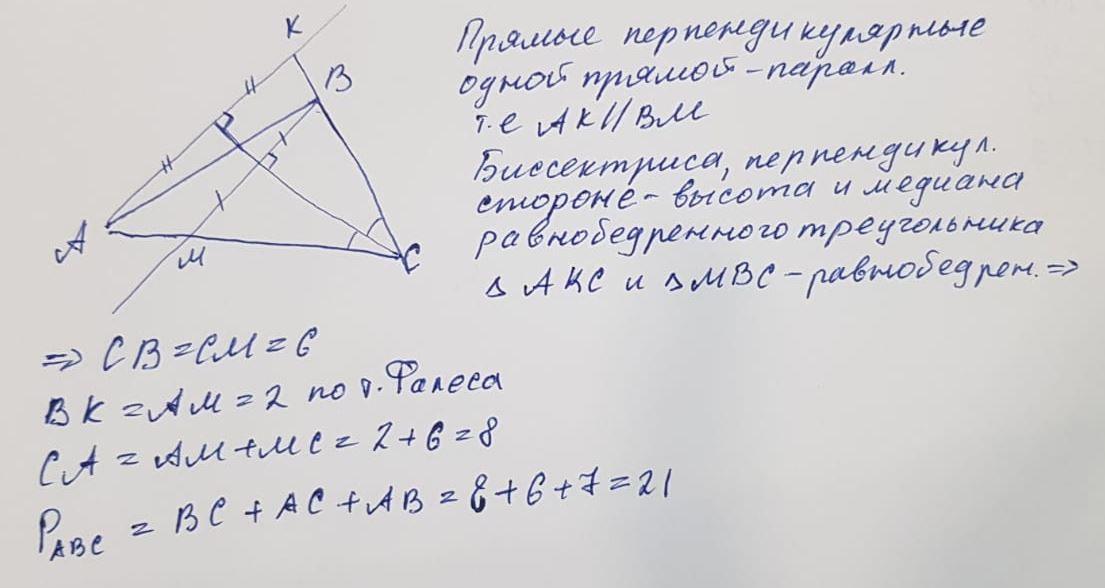 K
B
A
M
C
Прямые перпендикулярные
одной прямой - паралл.
т.е AK//BM
Биссектриса, перпендикул.
стороне - высота и медиана
равнобедренного треугольника
Δ AKC и Δ MBC - равнобедрен. =>
=> CB = CM = 6
BK = AM = 2 по т. Фалеса
CA = AM + MC = 2 + 6 = 8
P_ABC = BC + AC + AB = 8 + 6 + 7 = 21